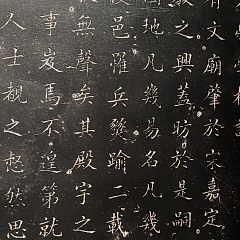 有文廟肇於宋嘉定
之興蓋昉於是嗣
地凡幾易名凡幾
邑罹兵燹踰二載
無聲矣其殿宇之
事岌焉不遑第就
人士覩之惄然思